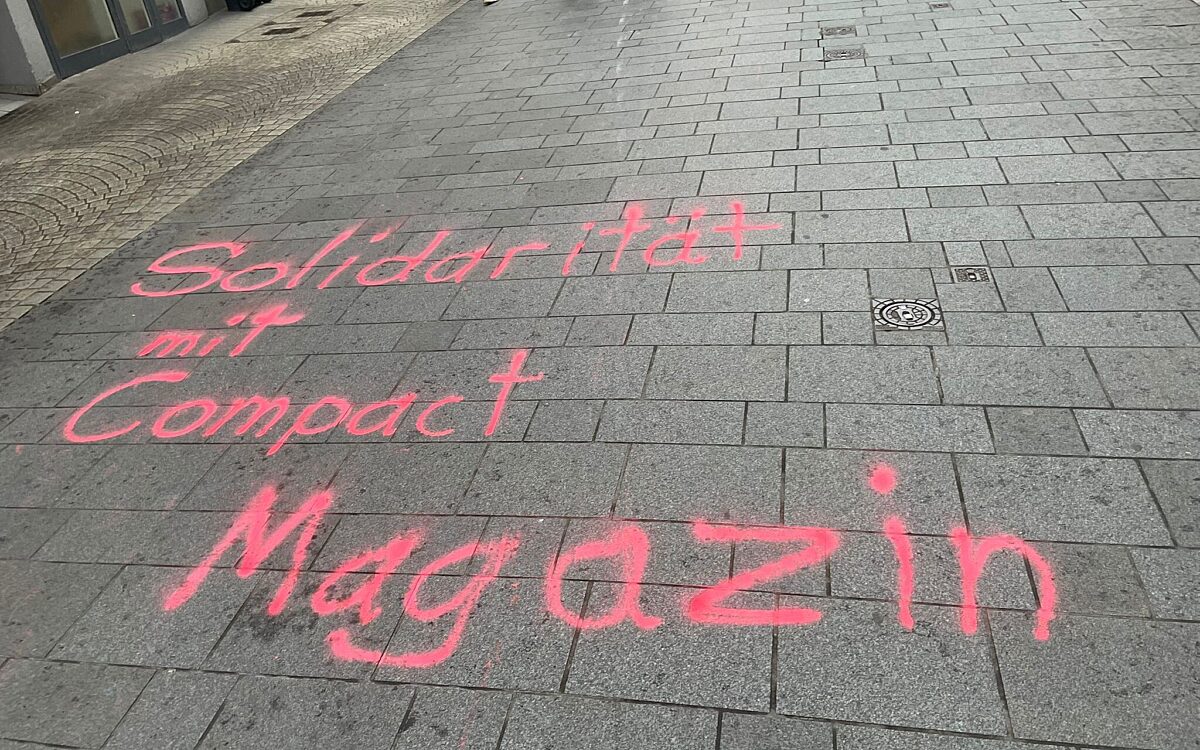 Solidarität
mit
Compact
Magazin